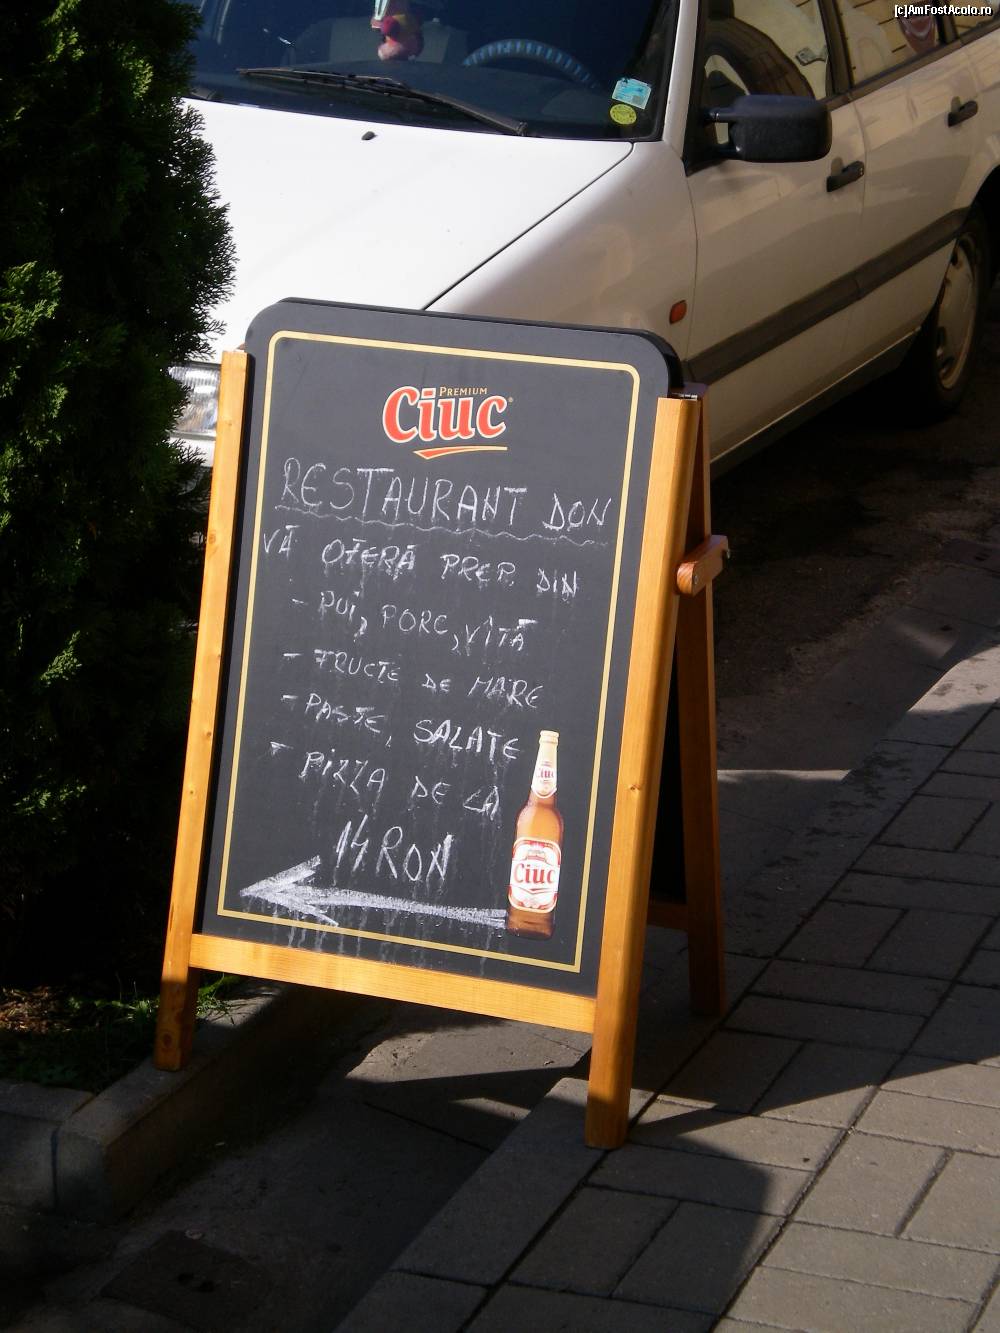 [c]AmFostAcolo.ro
PREMIUM
Ciuc
RESTAURANT DON
VĂ OFERĂ PREP. DIN
- PUI, PORC, VÎTĂ
- FRUCTE DE MARE
- PASTE, SALATE
- PIZZA DE LA
14 RON
Ciuc
Ciuc